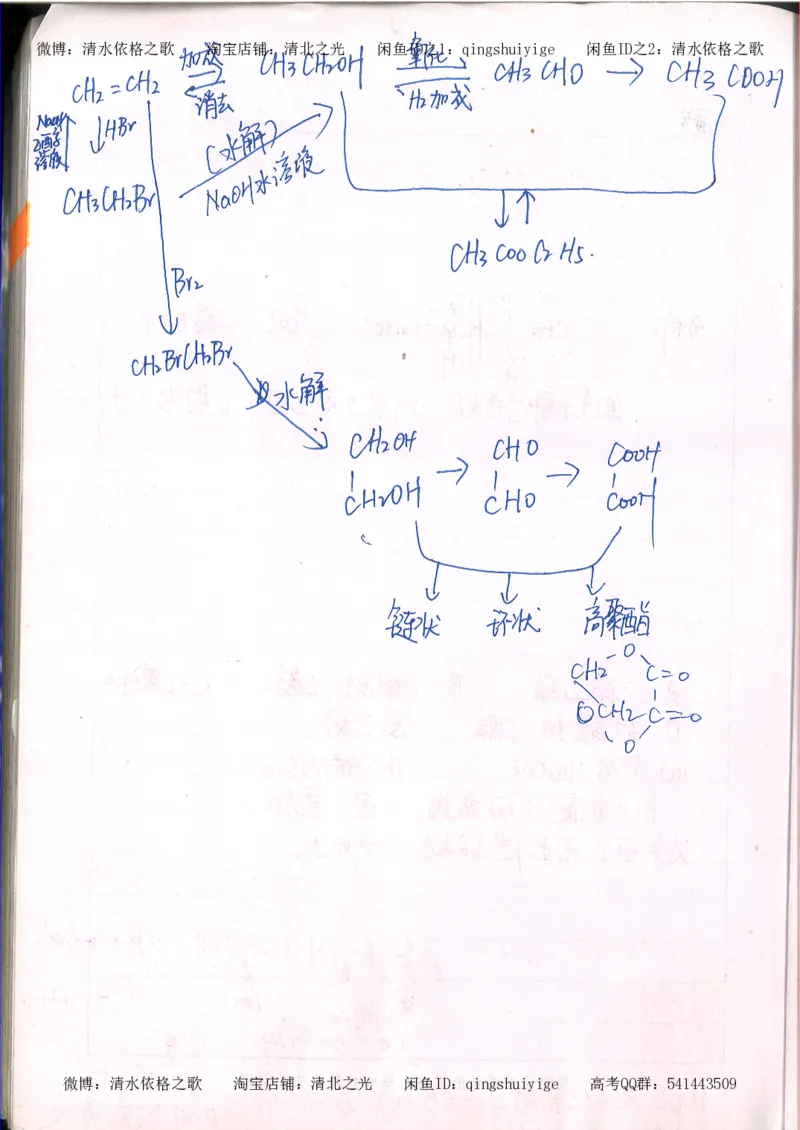 微博：清水依格之歌 淘宝店铺：清北之光 闲鱼ID之1：qingshuiyige 闲鱼ID之2：清水依格之歌
CH2=CH2 加成 消去 CH3CH2OH 氧化 H2加成 CH3CHO → CH3COOH
NaOH 乙醇 溶液 ↓HBr
(水解)
NaOH水溶液
CH3CH2Br
CH3COOC2H5.
Br2
CH2BrCH2Br
水解
CH2OH CHO COOH
CH2OH → CHO → COOH
链状 环状 高聚酯
CH2 O C=O
CH2 C=O
O
微博：清水依格之歌 淘宝店铺：清北之光 闲鱼ID：qingshuiyige 高考QQ群：541443509